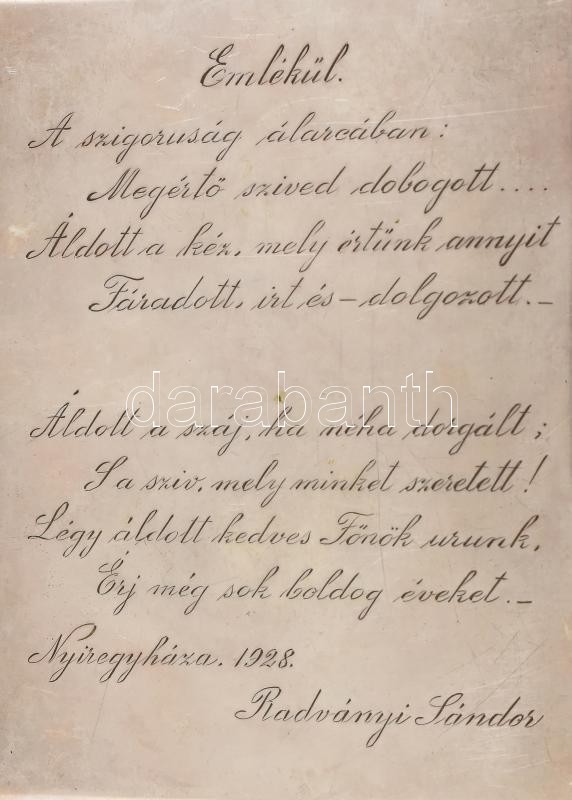 Emlékül.
A szigoruság álarcában:
Megértő szived dobogott....
Áldott a kéz, mely értünk annyit
Fáradott, irt és – dolgozott. –
darabanth
Áldott a száj, ha néha dorgált;
S a sziv, mely minket szeretett!
Légy áldott kedves Főnök urunk,
Érj még sok boldog éveket. –
Nyiregyháza. 1928.
Radványi Sándor